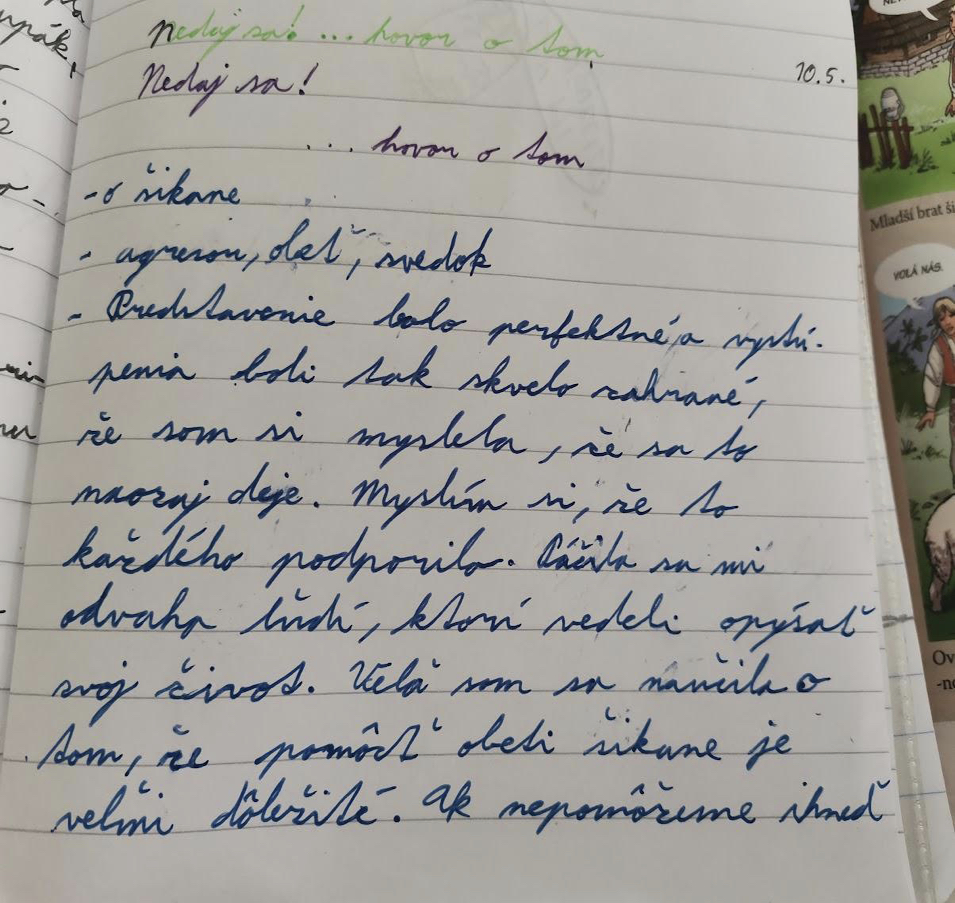 Nedaj sa! ... hovor o tom
10.5.
Nedaj sa!
... hovor o tom
- o šikane
- agresor, obeť, svedok
- Predstavenie bolo perfektné a vystú-
penia boli tak skvelo zahrané,
že som si myslela, že sa to
naozaj deje. Myslím si, že to
každého podporilo. Páčila sa mi
odvaha ľudí, ktorí vedeli opýsať
svoj život. Veľa som sa naučila o
tom, že pomôcť obeti šikane je
veľmi dôležité. Ak nepomôžeme ihneď
Mladší brat
VOLÁ NÁS.